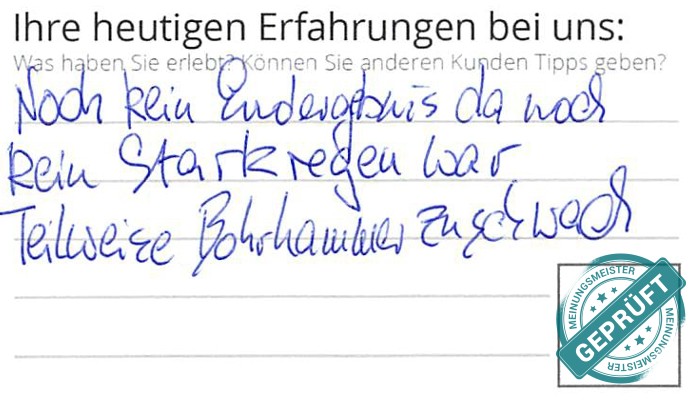 Ihre heutigen Erfahrungen bei uns:
Was haben Sie erlebt? Können Sie anderen Kunden Tipps geben?
Noch kein Endergebnis da noch
kein Starkregen war
Teilweise Bohrhammer zu schwach
MEINUNGSMEISTER
GEPRÜFT
MEINUNGSMEISTER